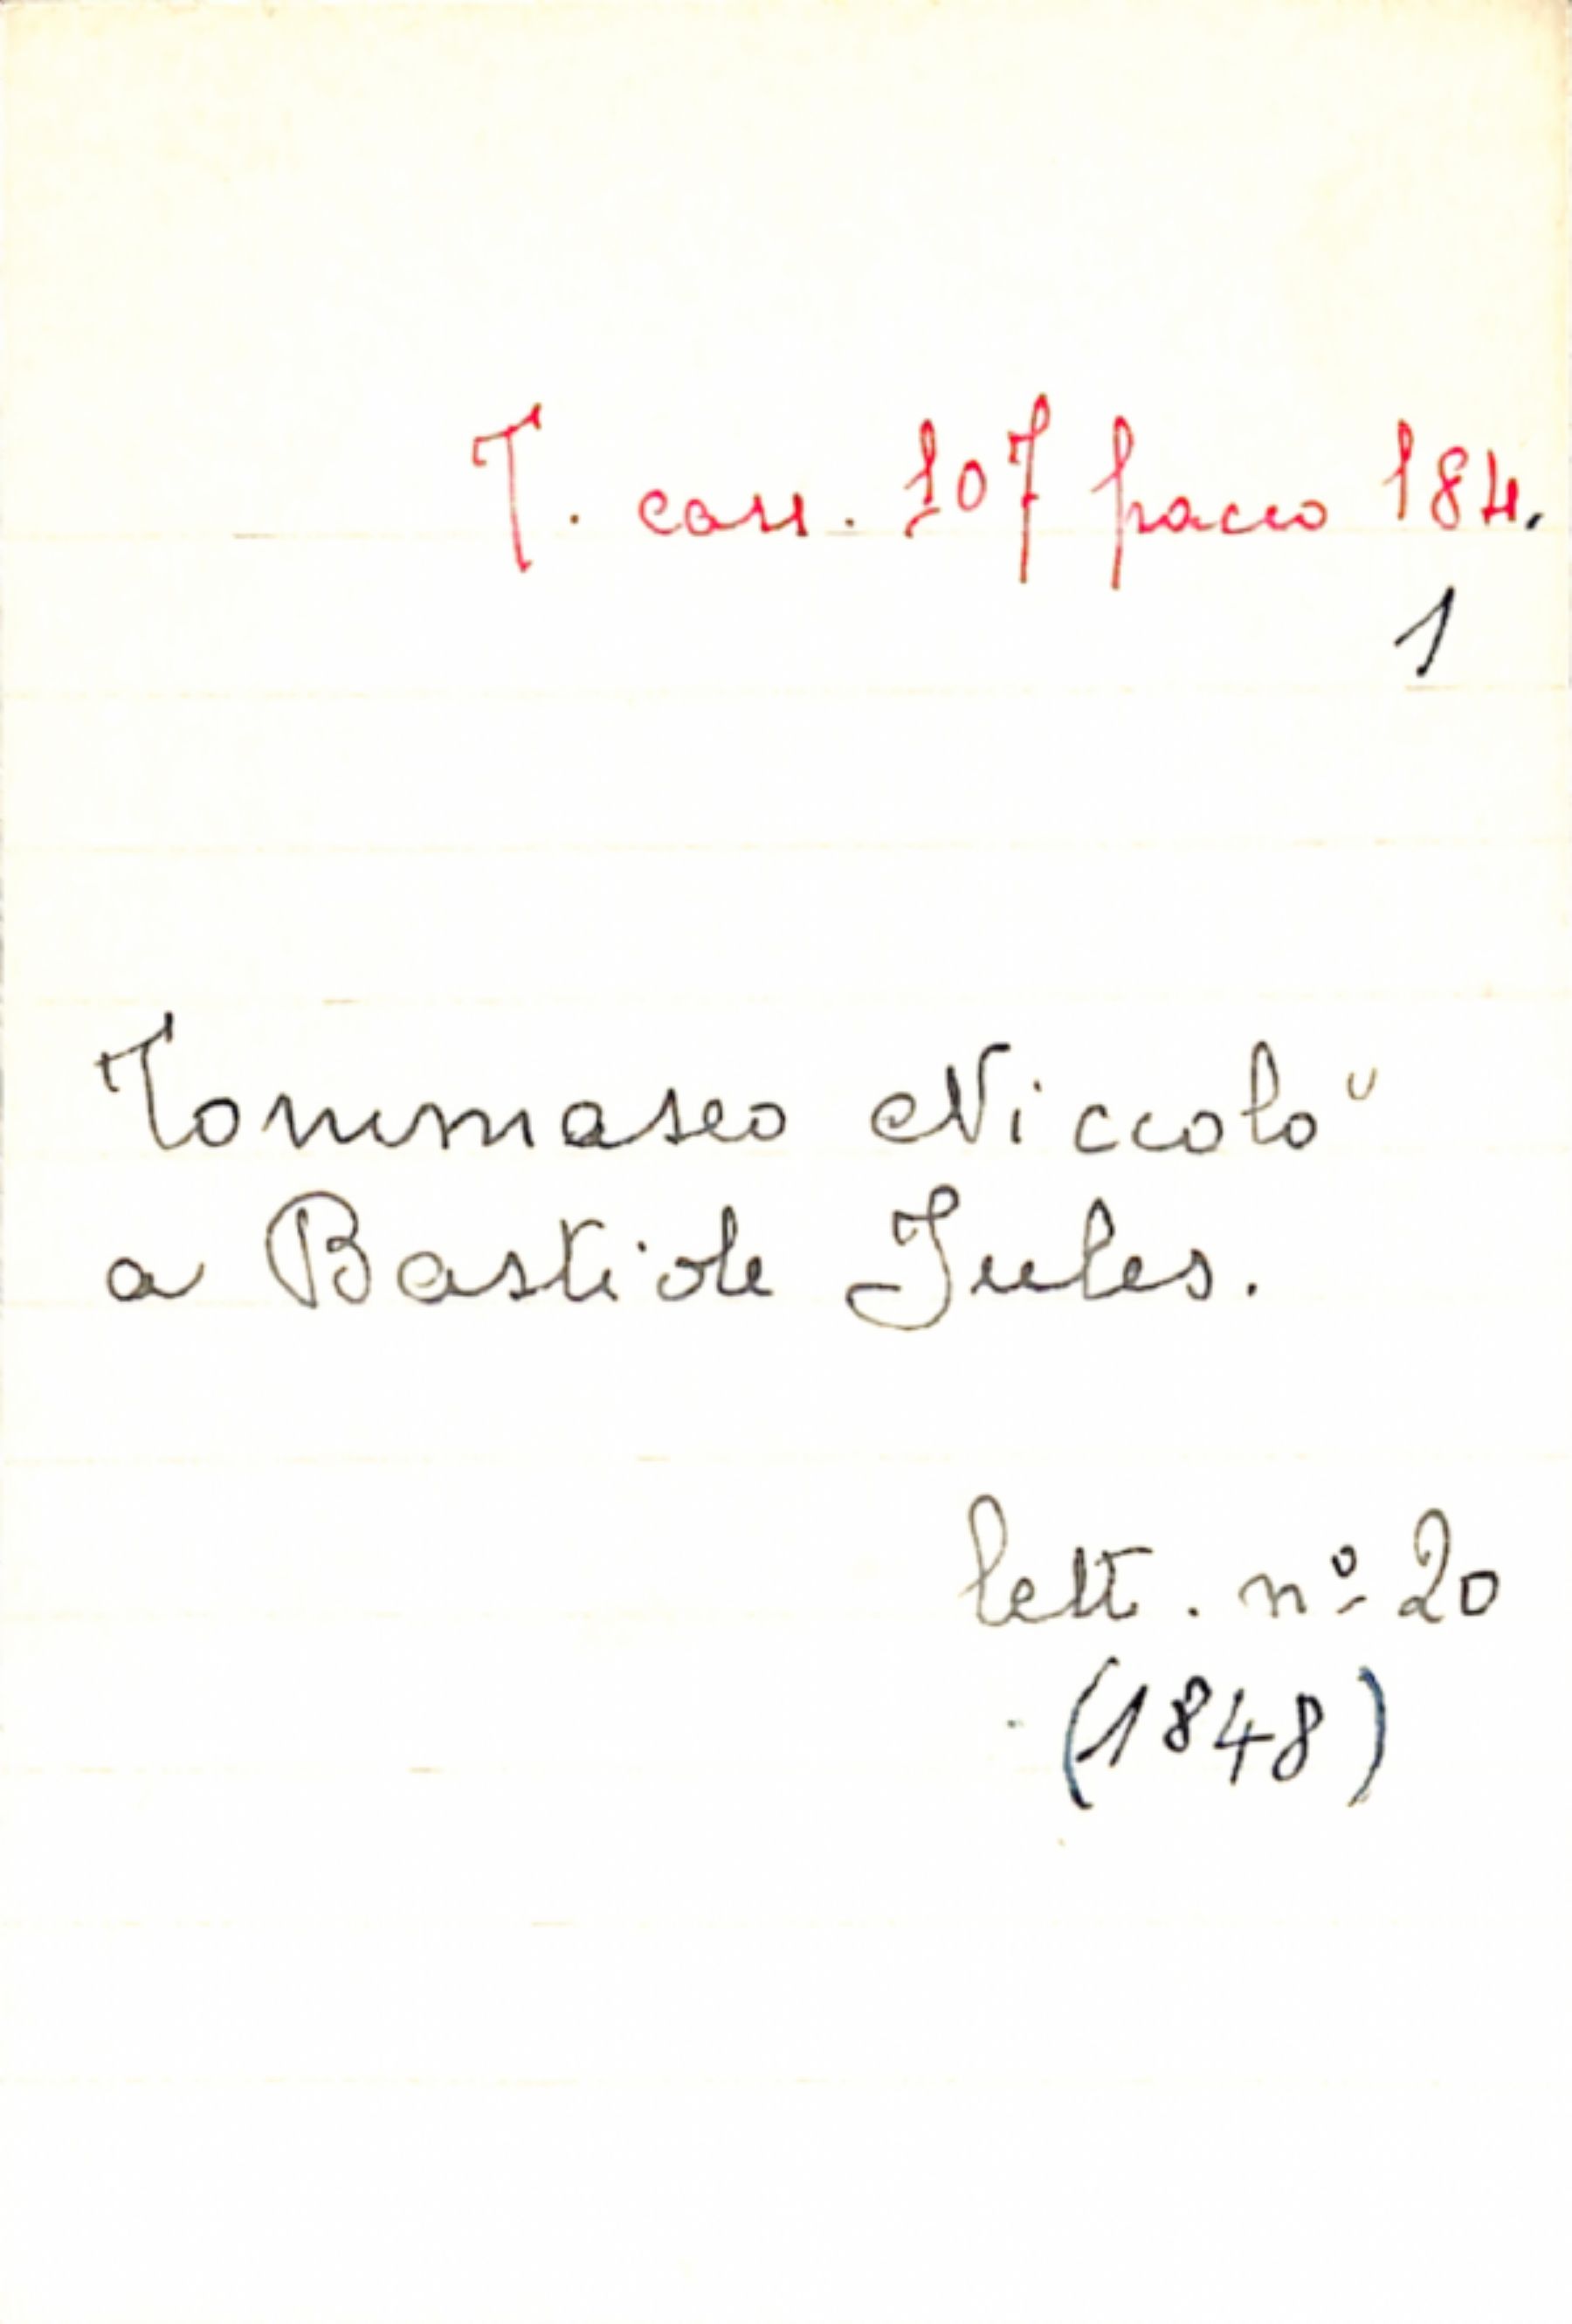 T. cass. 107 pacco 184.
1
Tommaseo Niccolò
a Bastide Jules.
lett. nº 20
(1848)